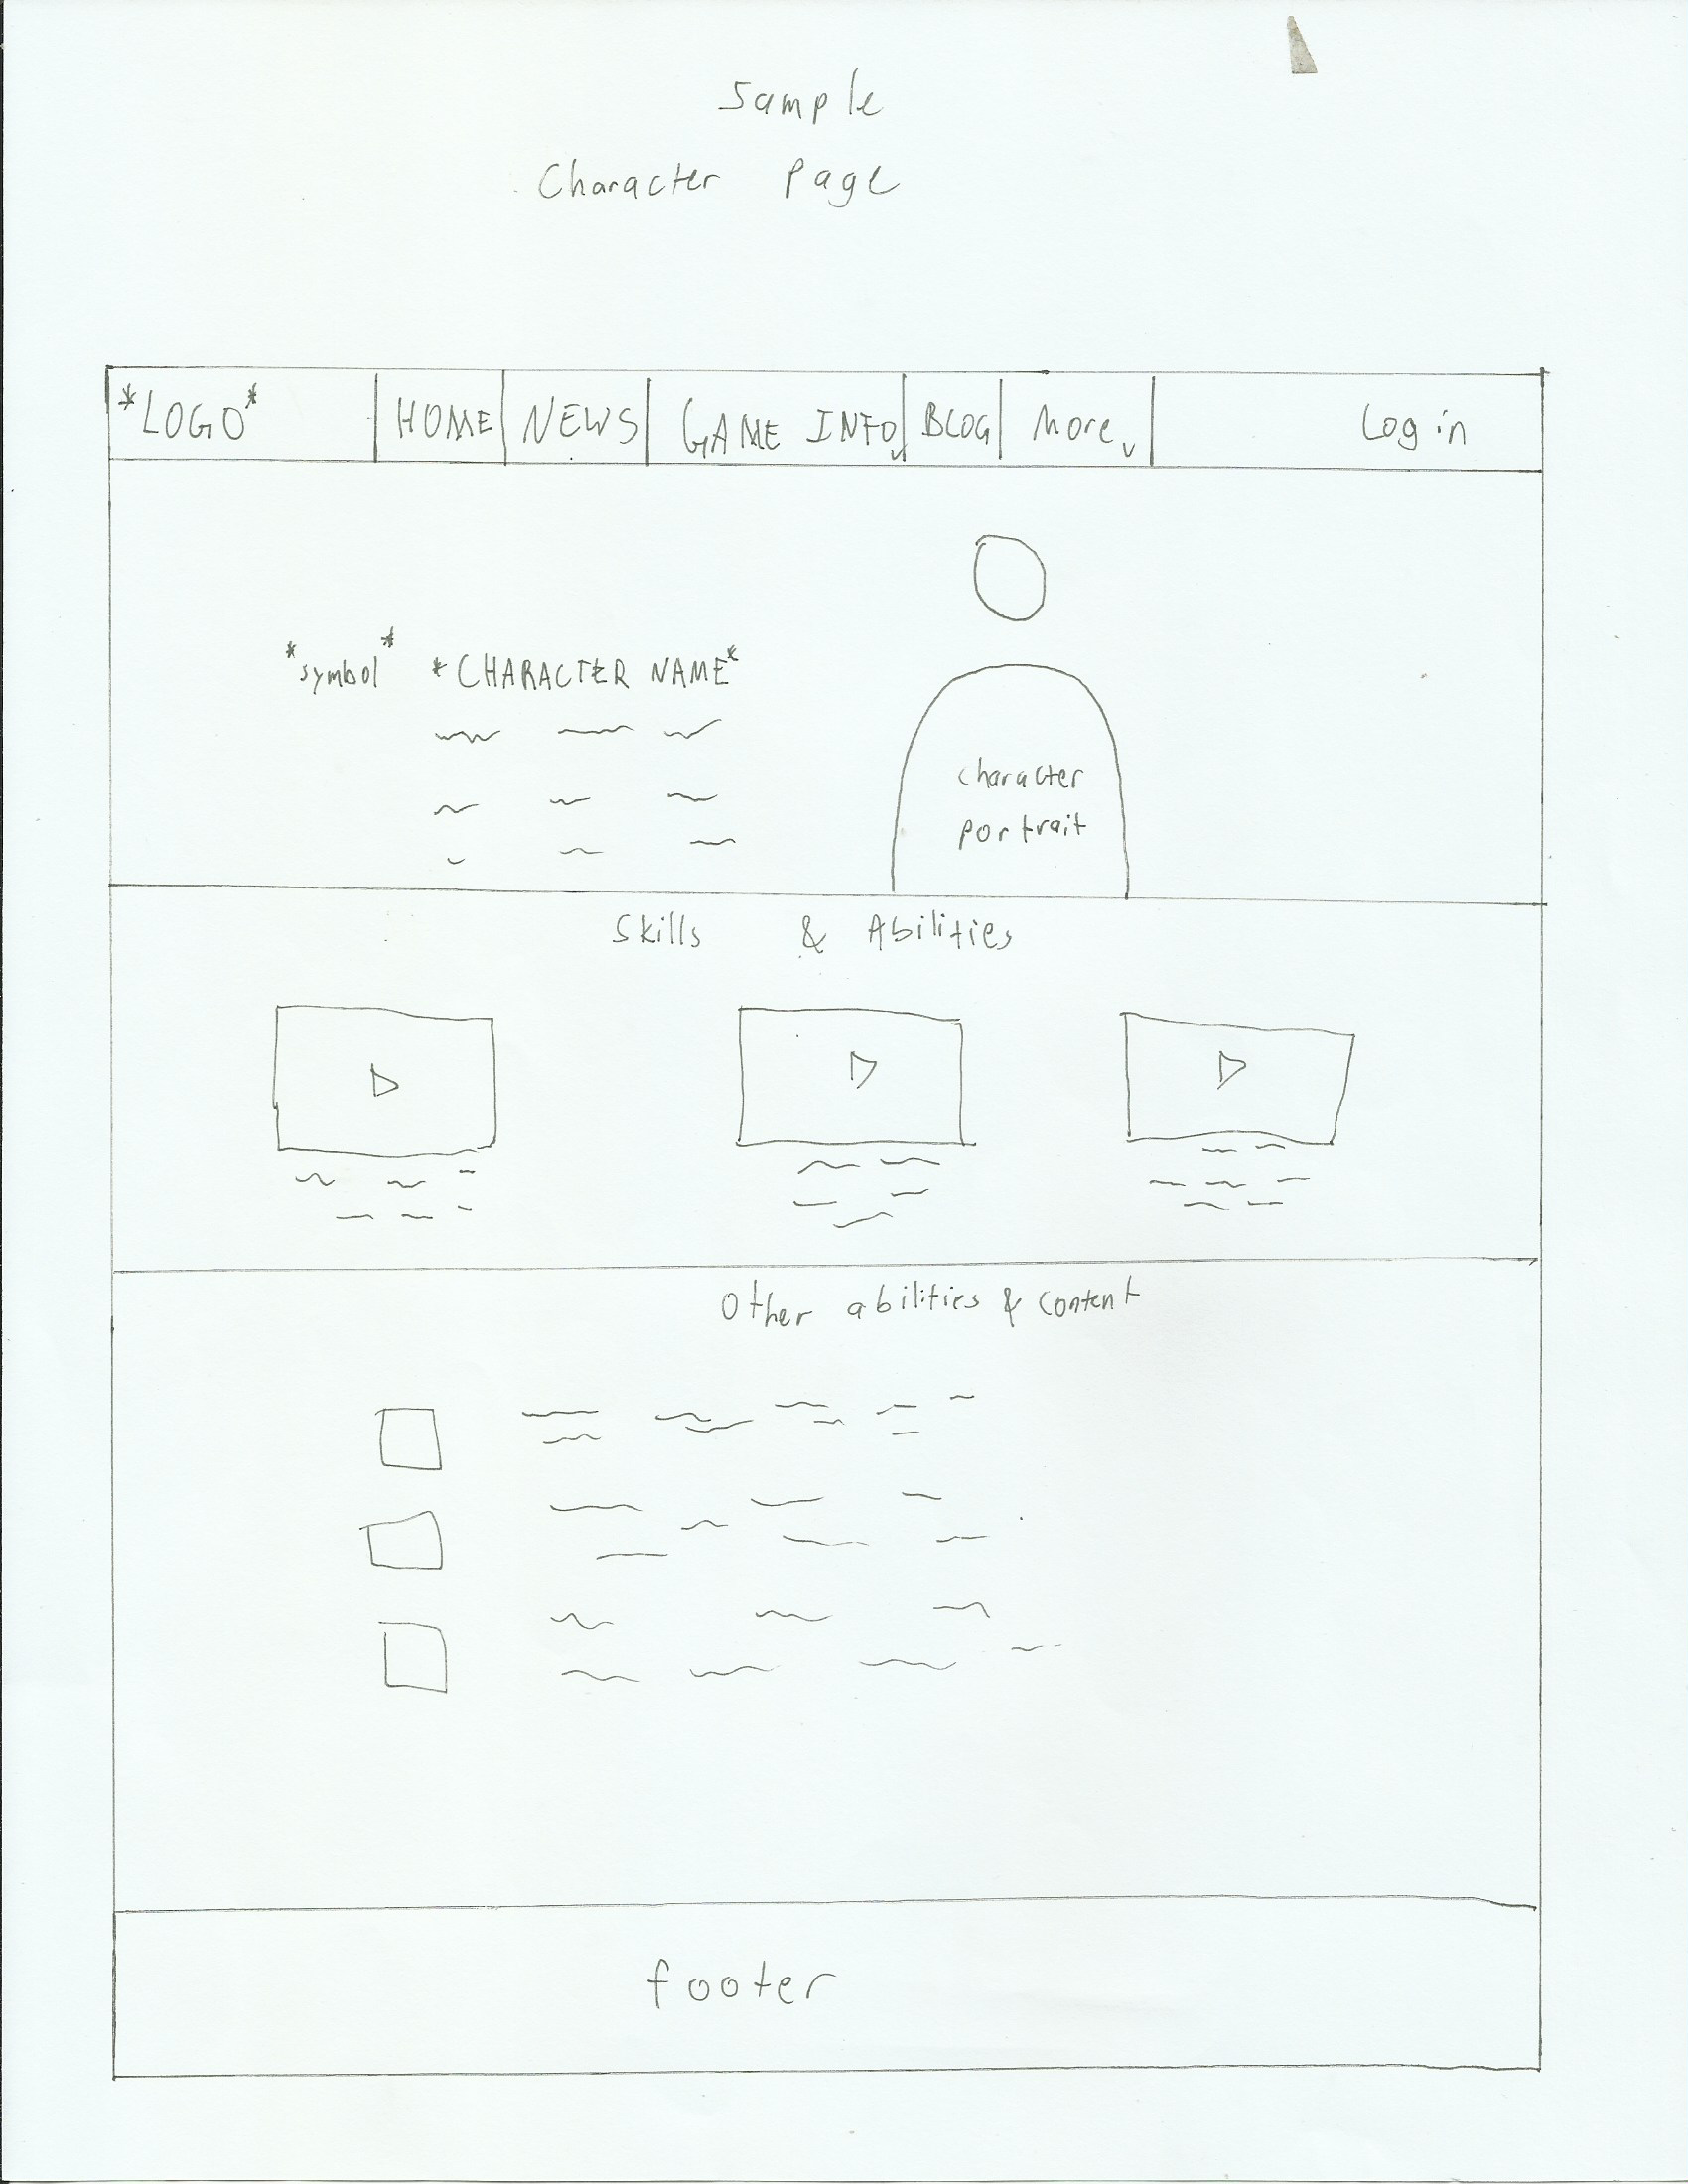 Sample
Character Page
*LOGO* HOME NEWS GAME INFO BLOG More Log in
*symbol* *CHARACTER NAME*
character
portrait
Skills & Abilities
Other abilities & content
footer